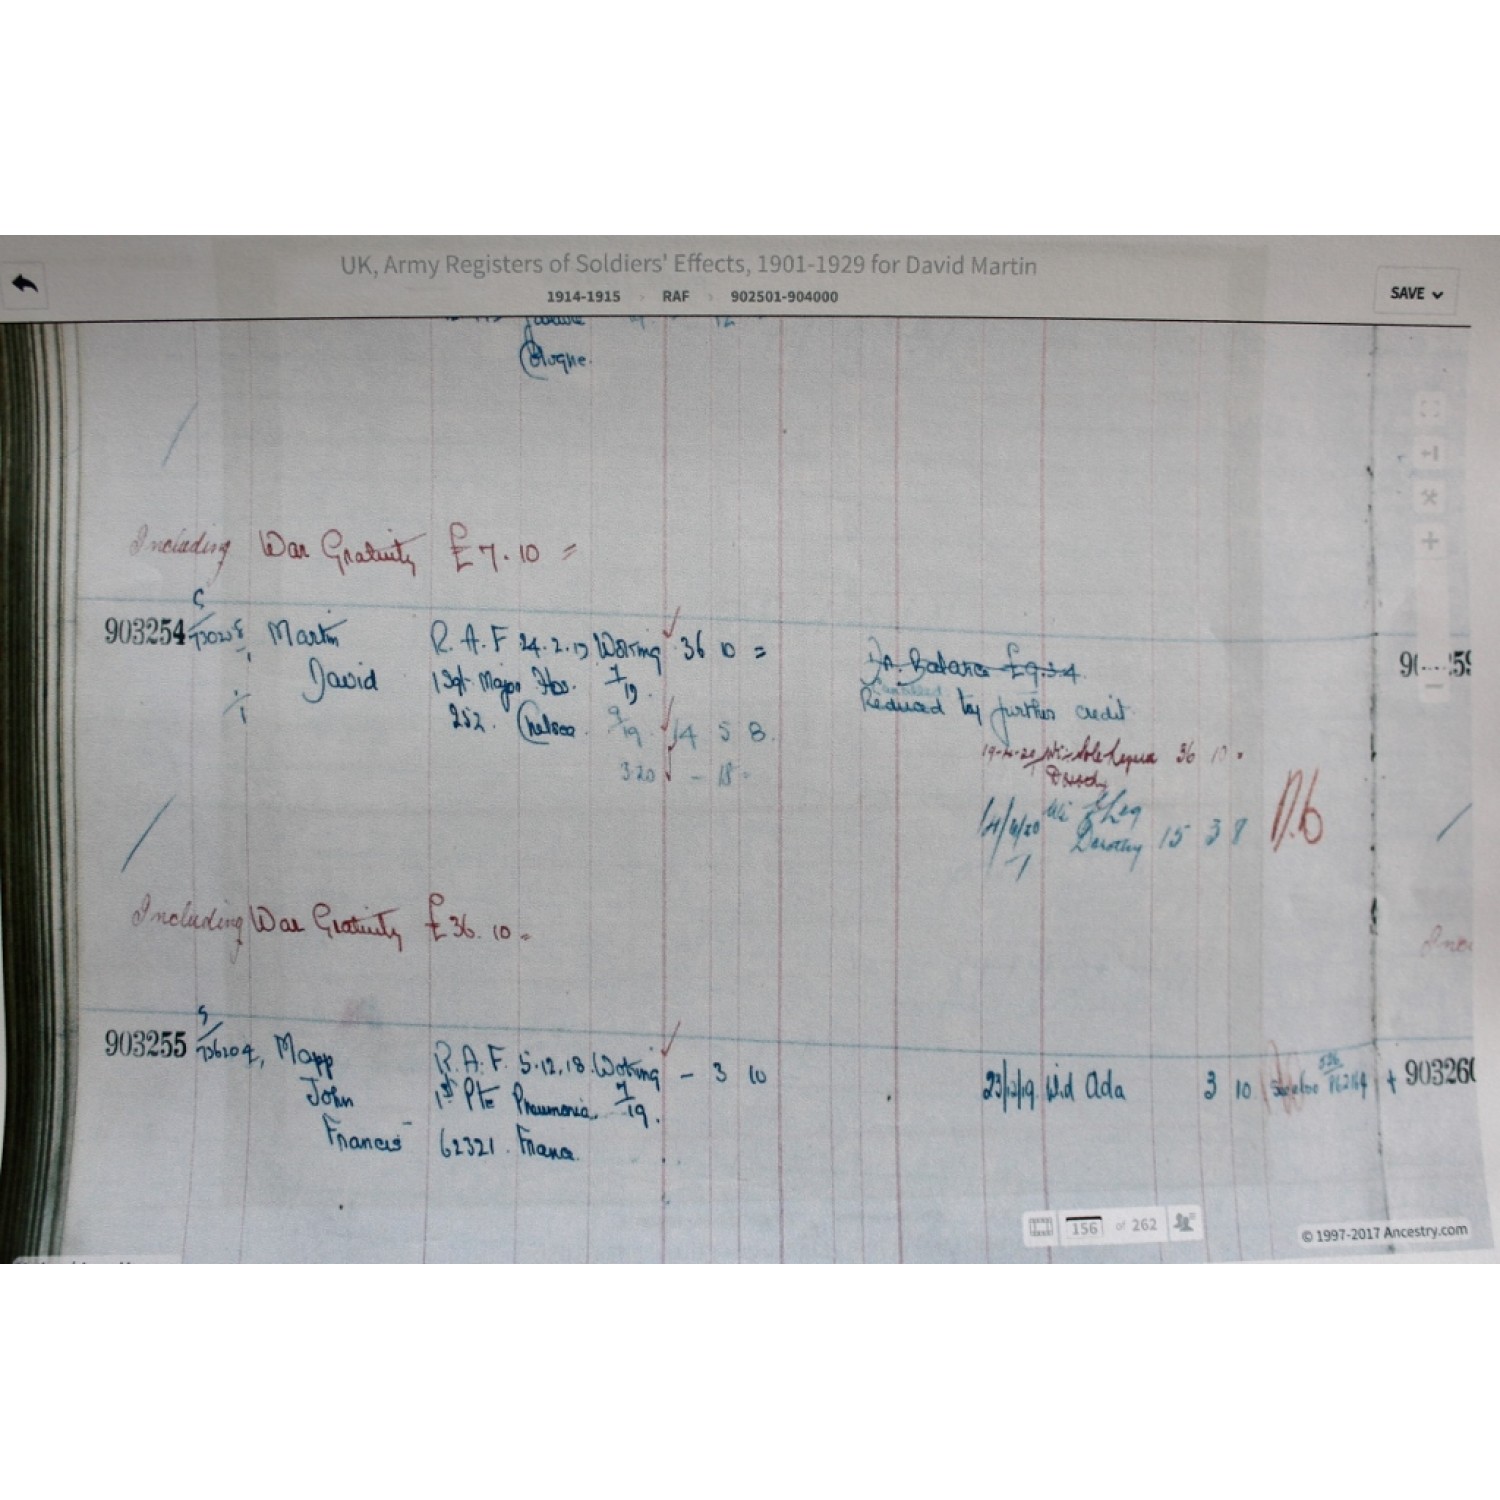 UK, Army Registers of Soldiers' Effects, 1901-1929 for David Martin
1914-1915 › RAF › 902501-904000
SAVE
Cologne.
Including War Gratuity £7.10 =
903254 Martin R.A.F 24.2.19 Woking 36 10 =
David 1 Sgt Major Hos. 7/19.
252. Chelsea 9/19 14 5 8
3.20 - 18 -
Dr. Balance £9.3.4
Cancelled
Reduced by further credit
36 10 -
Dorothy
14/6/20 Wi & Leg
Dorothy 15 3 8
Including War Gratuity £36.10 -
903255 736204, Mapp R.A.F. 5.12.18. Woking - 3 10
John 1st Pte Pneumonia. 7/19.
Francis 62321. France.
23/12/19. Wid Ada 3 10
90326
156 of 262
© 1997-2017 Ancestry.com